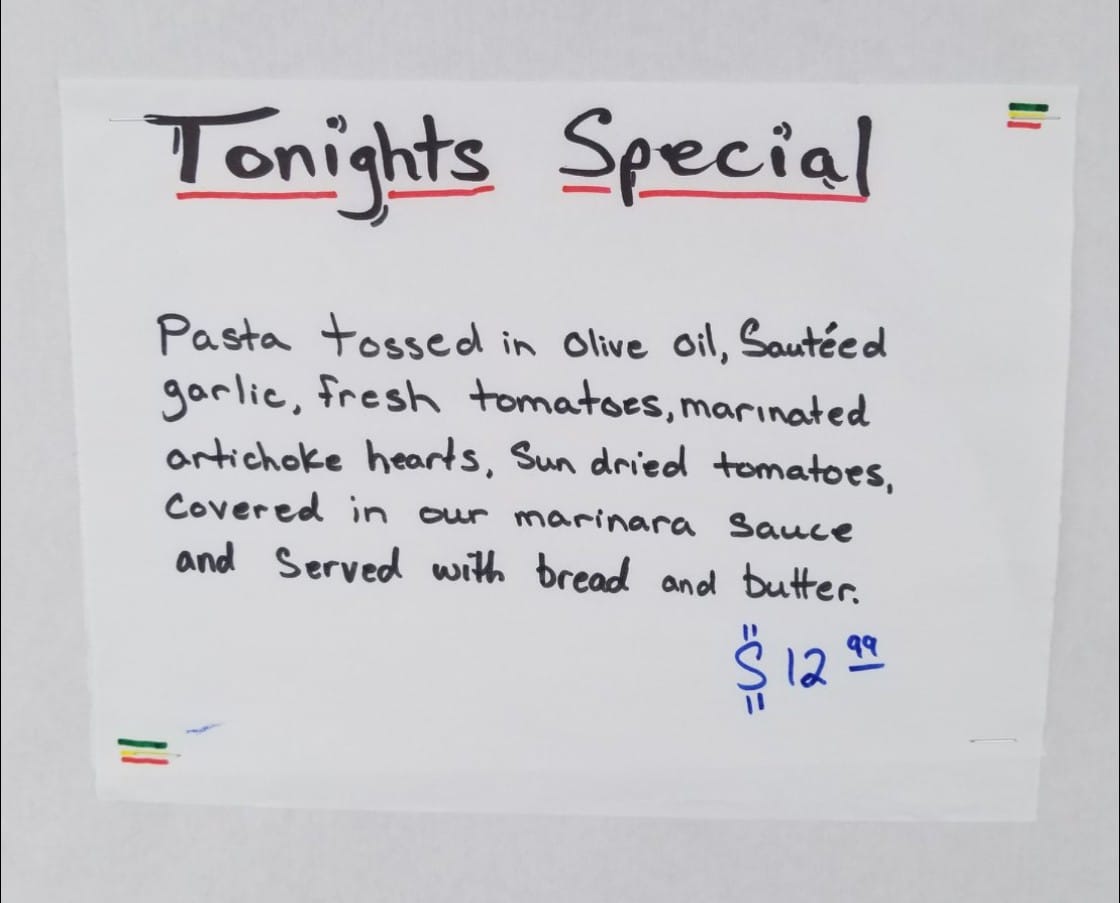 Tonights Special
Pasta tossed in olive oil, Sautéed
garlic, fresh tomatoes, marinated
artichoke hearts, Sun dried tomatoes,
Covered in our marinara sauce
and Served with bread and butter.
$12 99